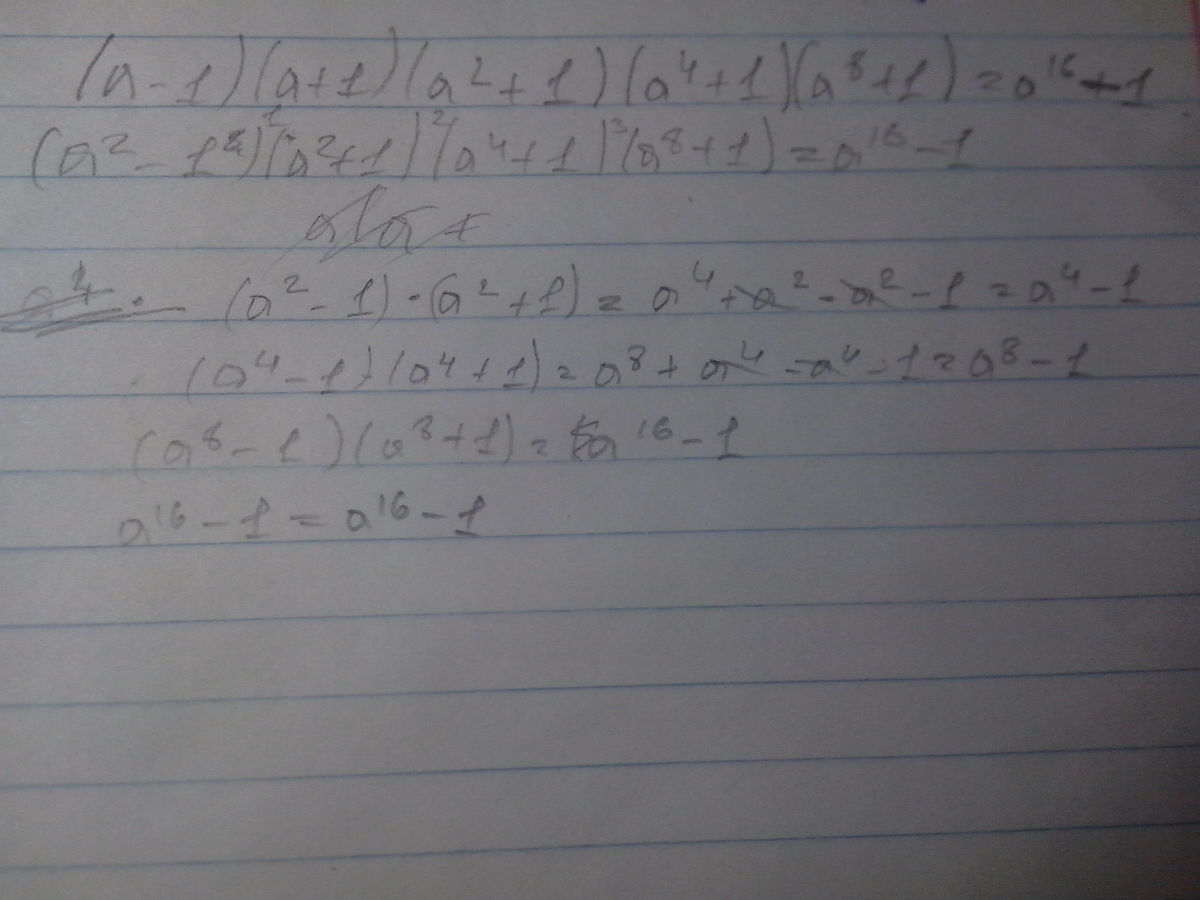 (a-1)(a+1)(a²+1)(a⁴+1)(a⁸+1)=a¹⁶-1
(a²-1²)¹(a²+1)²(a⁴+1)³(a⁸+1)=a¹⁶-1
(a²-1)·(a²+1)=a⁴+a²-a²-1=a⁴-1
(a⁴-1)·(a⁴+1)=a⁸+a⁴-a⁴-1=a⁸-1
(a⁸-1)(a⁸+1)=a¹⁶-1
a¹⁶-1=a¹⁶-1